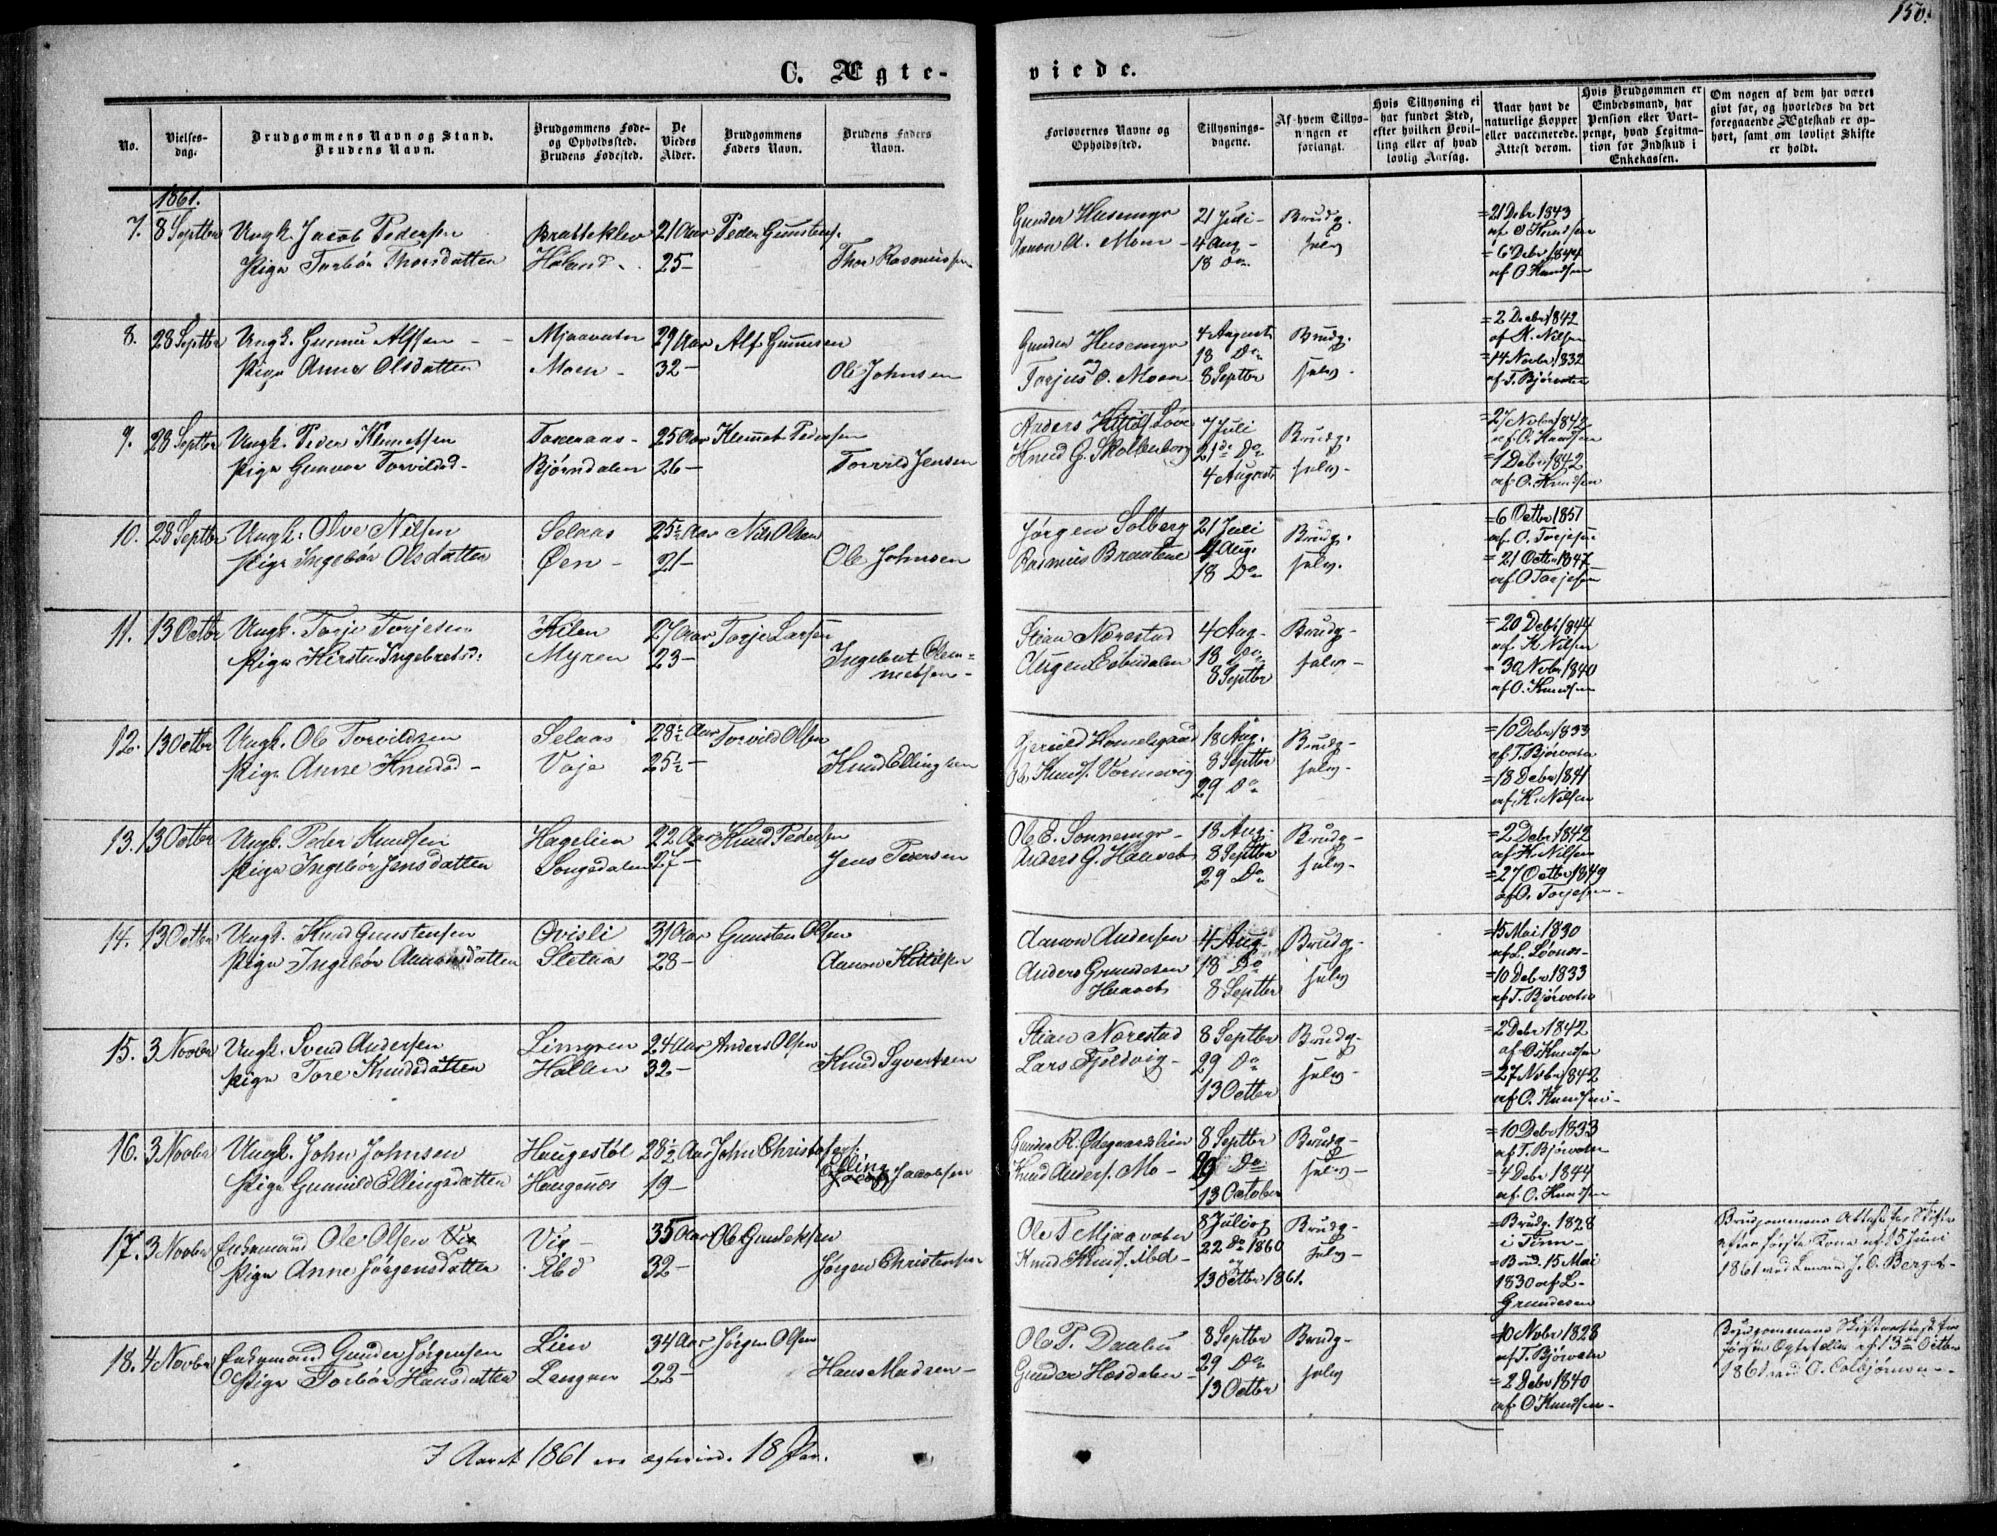 150.
C. Ægte-
viede.
No.
Vielses-
dag.
Brudgommens Navn og Stand.
Brudens Navn.
Brudgommens Føde-
og Opholdssted.
Brudens Fødested.
De
Viedes
Alder.
Brudgommens
Faders Navn.
Brudens Faders
Navn.
Forlovernes Navne og
Opholdssted.
Tillysnings-
dagene.
Af hvem Tillys-
ningen er
forlangt.
Hvis Tillysning ei
har fundet Sted,
efter hvilken Bevil-
ling eller af hvad
lovlig Aarsag.
Naar havt de
naturlige Kopper
eller vaccinerede.
Attest derom.
Hvis Brudgommen er
Embedsmand, har
Pension eller Vart-
penge, hvad Legitima-
tion for Indskud i
Enkekassen.
Om nogen af dem har været
givt før, og hvorledes da det
foregaaende Ægteskab er op-
hørt, samt om lovligt Skifte
er holdt.
1861.
7. 8 Septbr Ungk. Jacob Pedersen Bratteklev 21 Aar Peder Gunstens.
Pige Torbør Thorsdatter Håland 25 - Thor Rasmussen
Gunder Husemyr 21 Juli - Brudg. = 21 Debr 1843
Aanon A. Moen - 4 Aug - selv af O Knudsen
18 Do = 6 Debr 1844
af O. Knudsen
8. 28 Septbr Ungk. Gunnu Alfsen - Mjaavatn 29 Aar Alf Gunnesen
Pige Anne Olsdatter Moen - 32 - Ole Johnsen
Gunder Husemyr 4 August Brudg. = 2 Debr 1842
og 18 Do af K. Nilsen
Torjus O. Moen 8 Septbr selv - = 14 Novbr 1832
af T. Bjørvatn
9. 28 Septbr Ungk. Peder Klemetsen 25 Aar Klemet Pedersen
Pige Gunvor Torvildsd. Bjørndalen 26 - Torvild Jensen
Anders Løve 7 Juli Brudg. = 27 Novbr 1842
Knud G. Skollenborg 21de Do selv - af O. Knudsen
4 August = 1 Debr 1842
af O. Knudsen
10. 28 Septbr Ungk. Olve Nilsen Selaas 25½ Aar Nils Olsen
Pige Ingebør Olsdatter Øen - 21 - Ole Johnsen
Jørgen Solberg 21 Juli Brudg. = 6 Octbr 1851
Rasmus Braatene 4 Aug. selv. af O. Torjesen
18 Do = 21 Octbr 1847
af O Torjesen
11. 13 Octbr Ungk. Torje Torjesen Kilen 27 Aar Torje Larsen
Pige Kirsten Ingebretsd: Myren 23 - Ingebret Clem-
metsen -
Stian Nærestad 4 Aug - Brudg - = 20 Debr 1844
18 Do selv - af K Nilsen
8 Septbr = 30 Novbr 1840
af O. Knudsen
12. 13 Octbr Ungk. Ole Torvildsen Selaas 28½ Aar Torvild Olsen
Pige Anne Knudsd - Voje 25½ - Knud Ellingsen
18 Aug. Brudg - = 10 Debr 1833
Ole Knuds. Vormevig 8 Septbr selv - af T. Bjørvatn
29 Do = 18 Debr 1841
af K. Nilsen
13. 13 Octbr Ungk. Peder Knudsen Hagelia 22 Aar Knud Pedersen
Pige Ingebør Jensdatter Songedalen 27 - Jens Pedersen
Ole E. Sonnemyr - 18 Aug - Brudg - = 2 Debr 1842
Anders G. Haaveb 8 Septbr selv - af K. Nilsen
29 Do = 27 Octbr 1849
af O. Torjesen -
14. 13 Octbr Ungk. Knud Gunstensen Qvisli 31 Aar Gunsten Olsen
Pige Ingebør Aanonsdatter Sletta 28 - Aanon Kittilsen
Aanon Andersen 4 Aug - Brudg - = 15 Mai 1830
Anders Grundesen 18 Do selv af L. Løvaas -
Haaveb 8 Septbr = 10 Debr 1833
af T. Bjørvatn
15. 3 Novbr Ungk. Svend Andersen Limyren 24 Aar Anders Olsen
Pige Tore Knudsdatter Hallen 32 - Knud Syvertsen
Stian Nærestad 8 Septbr Brudg - = 2 Debr 1842
Lars Fjeldvig - 29 Do selv - af O. Knudsen
13 Octbr = 27 Novbr 1842
af O. Knudsen -
16. 3 Novbr Ungk. John Johnsen Haugestøl 28½ Aar John Christofers.
Pige Gunnild Ellingsdatter Haugenes 19 - Elling Jacobsen
Gunder R. Ødegaardslien 8 Septbr Brudg - = 10 Debr 1833
Knud Anders. Mo - 29 Do selv - af T. Bjørvatn
13 October = 4 Debr 1844
af O. Knudsen
17. 3 Novbr Enkemand Ole Olsen Vix Vix - 35 Aar Ole Gundersen
Pige Anne Jørgensdatter Ibd 32 - Jørgen Christensen
Ole T Mjaavatn 8 Juli og Brudg - = Brudg. 1828 Brudgommens Attest for Skifte
Knud Knuds. Ibd - 22 Do 1860 selv - i Tinn - efter første Kone af d 5 Juni
og = Brud. 15 Mai 1861 ved Lensm. J. O. Berget -
13 Octbr 1861. 1830 af L -
Grundesen
18. 4 Novbr Enkemand Gunder Jørgensen Lien 34 Aar Jørgen Olsen
Pige Torbør Hansdatter Langen 22 - Hans Madsen -
Ole P. Daalu 8 Septbr Brudg - = 10 Novbr 1828 Brudgommens Skifteattest for
Gunder Hosdalen - 29 Do selv af T. Bjørvatn første Ægtefælle af 13de Octbr
13 Octbr = 2 Debr 1840 1861 ved O. Colbjørnsen -
af O Knudsen -
I Aaret 1861 ere ægteviede 18 Par.